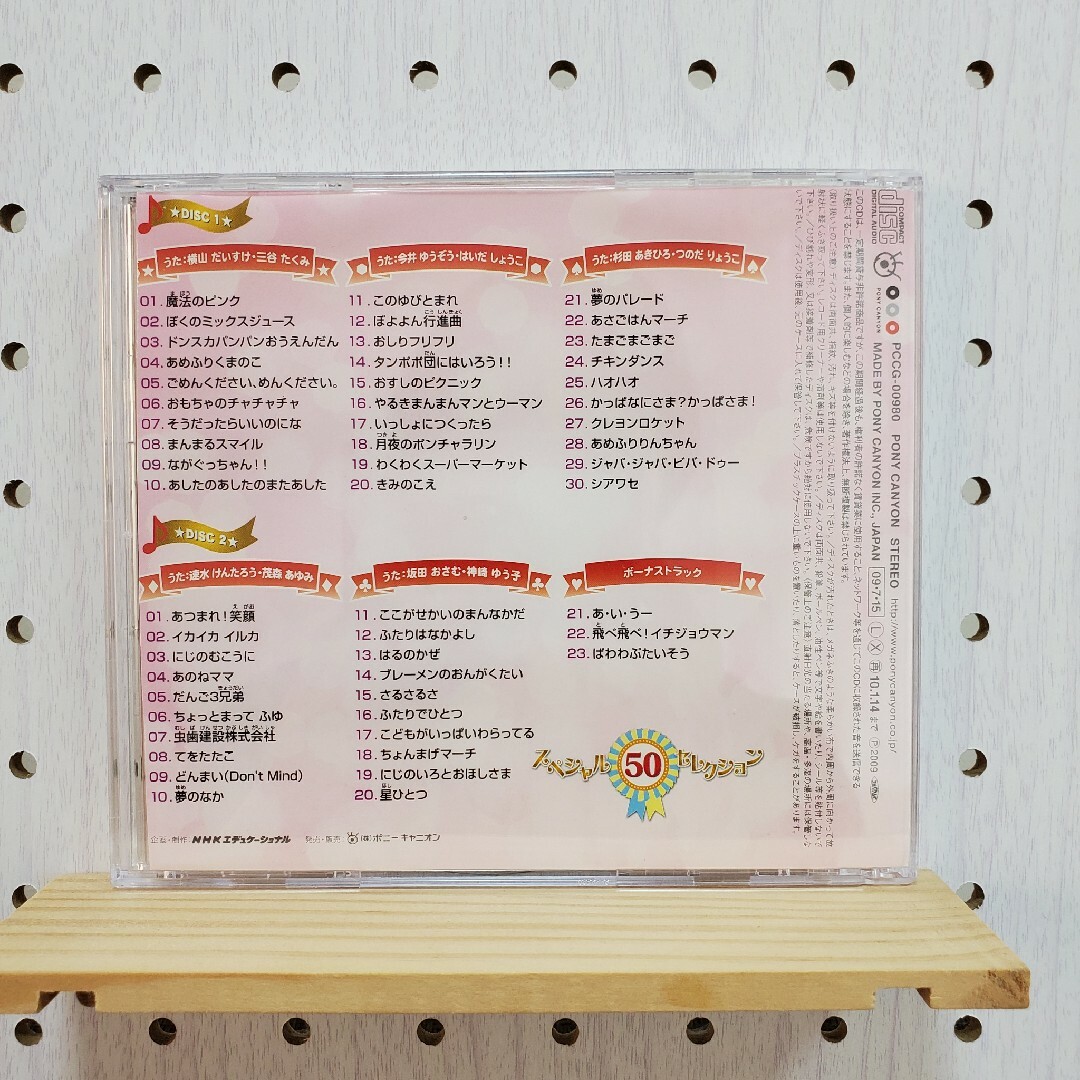 ★DISC 1★
うた:横山 だいすけ・三谷 たくみ
01. 魔法のピンク
02. ぼくのミックスジュース
03. ドンスカパンパンおうえんだん
04. あめふりくまのこ
05. ごめんください、めんください。
06. おもちゃのチャチャチャ
07. そうだったらいいのにな
08. まんまるスマイル
09. ながぐっちゃん!!
10. あしたのあしたのまたあした
うた:今井 ゆうぞう・はいだ しょうこ
11. このゆびとまれ
12. ぼよよん行進曲
13. おしりフリフリ
14. タンポポ団にはいろう!!
15. おすしのピクニック
16. やるきまんまんマンとウーマン
17. いっしょにつくったら
18. 月夜のポンチャラリン
19. わくわくスーパーマーケット
20. きみのこえ
うた:杉田 あきひろ・つのだ りょうこ
21. 夢のパレード
22. あさごはんマーチ
23. たまごまごまご
24. チキンダンス
25. ハオハオ
26. かっぱなにさま?かっぱさま!
27. クレヨンロケット
28. あめふりりんちゃん
29. ジャバ・ジャバ・ビバ・ドゥー
30. シアワセ
★DISC 2★
うた:速水 けんたろう・茂森 あゆみ
01. あつまれ!笑顔
02. イカイカ イルカ
03. にじのむこうに
04. あのねママ
05. だんご3兄弟
06. ちょっとまって ふゆ
07. 虫歯建設株式会社
08. てをたたこ
09. どんまい(Don't Mind)
10. 夢のなか
うた:坂田 おさむ・神崎 ゆう子
11. ここがせかいのまんなかだ
12. ふたりはなかよし
13. はるのかぜ
14. ブレーメンのおんがくたい
15. さるさるさ
16. ふたりでひとつ
17. こどもがいっぱいわらってる
18. ちょんまげマーチ
19. にじのいろとおほしさま
20. 星ひとつ
ボーナストラック
21. あ・い・うー
22. 飛べ飛べ!イチジョウマン
23. ぱわわぷたいそう
スペシャル50セレクション
企画・制作 NHKエデュケーショナル 発売・販売 (株)ポニー キャニオン
COMPACT
disc
DIGITAL AUDIO
PONY CANYON
PCCG-00980 PONY CANYON STEREO http://www.ponycanyon.co.jp/
MADE BY PONY CANYON INC., JAPAN 09・7・15 Ⓛ Ⓧ 再 10.1.14 まで Ⓟ2009